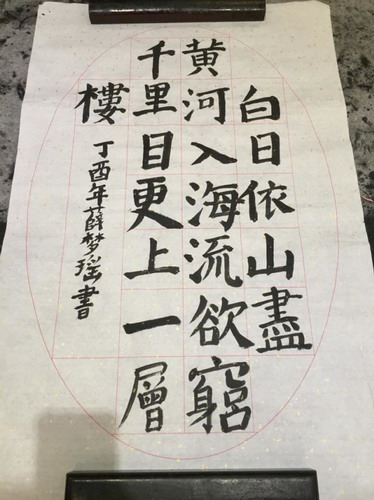 白日依山盡
黄河入海流欲窮
千里目更上一層
樓
丁酉年薛梦瑶書